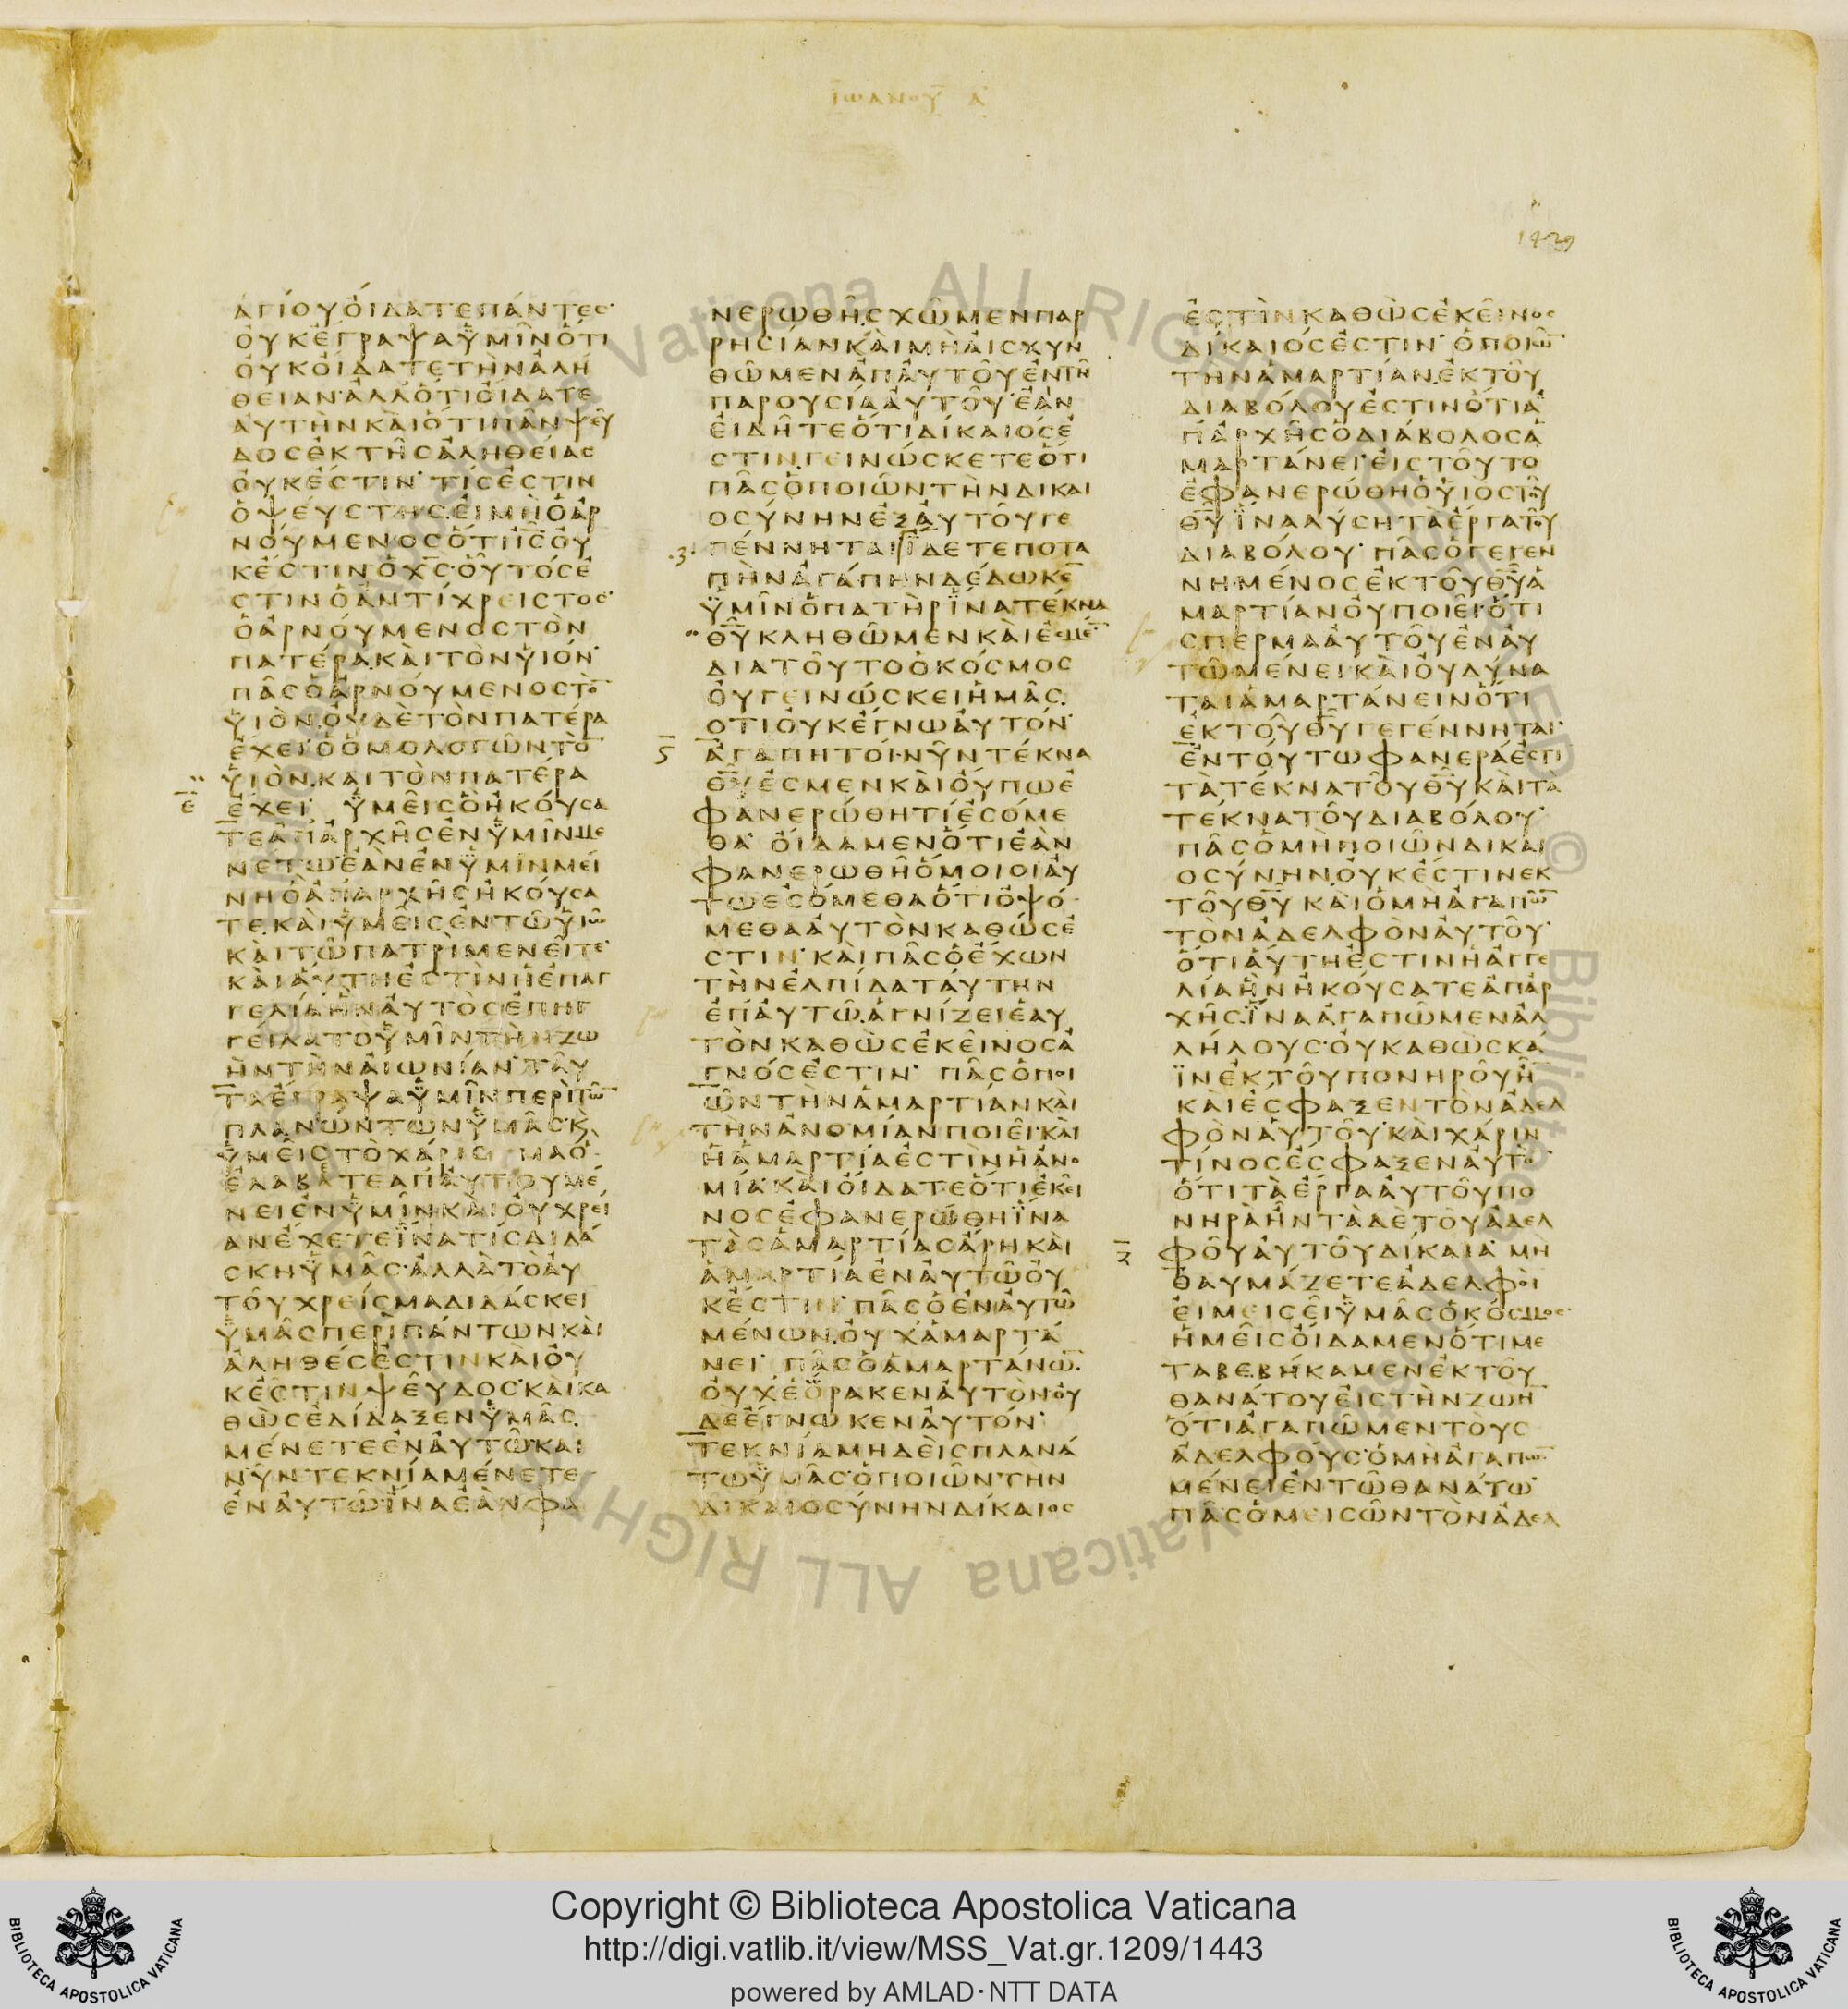 ΙΩΑΝΟΥ Α
1439
ΑΓΙΟΥΟΙΔΑΤΕΠΑΝΤΕΣ
ΟΥΚΕΓΡΑΨΑΥΜΙΝΟΤΙ
ΟΥΚΟΙΔΑΤΕΤΗΝΑΛΗ
ΘΕΙΑΝΑΛΛΟΤΙΟΙΔΑΤΕ
ΑΥΤΗΝΚΑΙΟΤΙΠΑΝΨΕΥ
ΔΟΣΕΚΤΗΣΑΛΗΘΕΙΑΣ
ΟΥΚΕΣΤΙΝ ΤΙΣΕΣΤΙΝ
ΟΨΕΥΣΤΗΣΕΙΜΗΟΑΡ
ΝΟΥΜΕΝΟΣΟΤΙΙΣΟΥ
ΚΕΣΤΙΝΟΧΣΟΥΤΟΣΕ
ΣΤΙΝΟΑΝΤΙΧΡΕΙΣΤΟΣ
ΟΑΡΝΟΥΜΕΝΟΣΤΟΝ
ΠΑΤΕΡΑΚΑΙΤΟΝΥΙΟΝ
ΠΑΣΟΑΡΝΟΥΜΕΝΟΣΤΟ̅
ΥΙΟΝΟΥΔΕΤΟΝΠΑΤΕΡΑ
ΕΧΕΙΟΟΜΟΛΟΓΩΝΤΟ̅
ΥΙΟΝΚΑΙΤΟΝΠΑΤΕΡΑ
Ε̅ ΕΧΕΙ ΥΜΕΙΣΟΗΚΟΥΣΑ
ΤΕΑΠΑΡΧΗΣΕΝΥΜΙΝΜΕ
ΝΕΤΩΕΑΝΕΝΥΜΙΝΜΕΙ
ΝΗΟΑΠΑΡΧΗΣΗΚΟΥΣΑ
ΤΕΚΑΙΥΜΕΙΣΕΝΤΩΥΙΩ
ΚΑΙΤΩΠΑΤΡΙΜΕΝΕΙΤΕ
ΚΑΙΑΥΤΗΕΣΤΙΝΗΕΠΑΓ
ΓΕΛΙΑΗΝΑΥΤΟΣΕΠΗΓ
ΓΕΙΛΑΤΟΥΜΙΝΤΗΝΖΩ
ΗΝΤΗΝΑΙΩΝΙΑΝ ΤΑΥ
ΤΑΕΓΡΑΨΑΥΜΙΝΠΕΡΙΤΩ̅
ΠΛΑΝΩΝΤΩΝΥΜΑΣΚ
ΥΜΕΙΣΤΟΧΑΡΙΣ ΜΑΟ
ΕΛΑΒΑΤΕΑΠΑΥΤΟΥΜΕ
ΝΕΙΕΝΥΜΙΝΚΑΙΟΥΧΡΕΙ
ΑΝΕΧΕΤΕΙΝΑΤΙΣΔΙΔΑ
ΣΚΗΥΜΑΣΑΛΛΑΤΟΑΥ
ΤΟΥΧΡΕΙΣΜΑΔΙΔΑΣΚΕΙ
ΥΜΑΣΠΕΡΙΠΑΝΤΩΝΚΑΙ
ΑΛΗΘΕΣΕΣΤΙΝΚΑΙΟΥ
ΚΕΣΤΙΝΨΕΥΔΟΣΚΑΙΚΑ
ΘΩΣΕΔΙΔΑΞΕΝΥΜΑΣ
ΜΕΝΕΤΕΕΝΑΥΤΩΚΑΙ
ΝΥΝΤΕΚΝΙΑΜΕΝΕΤΕ
ΕΝΑΥΤΩΙΝΑΕΑΝΦΑ
ΝΕΡΩΘΗΣΧΩΜΕΝΠΑΡ
ΡΗΣΙΑΝΚΑΙΜΗΑΙΣΧΥΝ
ΘΩΜΕΝΑΠΑΥΤΟΥΕΝΤΗ
ΠΑΡΟΥΣΙΑΑΥΤΟΥ ΕΑΝ
ΕΙΔΗΤΕΟΤΙΔΙΚΑΙΟΣΕ
ΣΤΙΝΓΕΙΝΩΣΚΕΤΕΟΤΙ
ΠΑΣΟΠΟΙΩΝΤΗΝΔΙΚΑΙ
ΟΣΥΝΗΝΕΞΑΥΤΟΥΓΕ
ΓΕΝΝΗΤΑΙ ΙΔΕΤΕΠΟΤΑ
ΠΗΝΑΓΑΠΗΝΔΕΔΩΚΕ̅
ΥΜΙΝΟΠΑΤΗΡΙΝΑΤΕΚΝΑ
ΘΥ̅ΚΛΗΘΩΜΕΝΚΑΙΕΣΜΕ̅
ΔΙΑΤΟΥΤΟΟΚΟΣΜΟΣ
ΟΥΓΕΙΝΩΣΚΕΙΗΜΑΣ
ΟΤΙΟΥΚΕΓΝΩΑΥΤΟΝ
Ϛ̅ ΑΓΑΠΗΤΟΙΝΥΝΤΕΚΝΑ
ΘΥ̅ΕΣΜΕΝΚΑΙΟΥΠΩΕ
ΦΑΝΕΡΩΘΗΤΙΕΣΟΜΕ
ΘΑ ΟΙΔΑΜΕΝΟΤΙΕΑΝ
ΦΑΝΕΡΩΘΗΟΜΟΙΟΙΑΥ
ΤΩΕΣΟΜΕΘΑΟΤΙΟΨΟ
ΜΕΘΑΑΥΤΟΝΚΑΘΩΣΕ
ΣΤΙΝ ΚΑΙΠΑΣΟΕΧΩΝ
ΤΗΝΕΛΠΙΔΑΤΑΥΤΗΝ
ΕΠΑΥΤΩΑΓΝΙΖΕΙΕΑΥ
ΤΟΝΚΑΘΩΣΕΚΕΙΝΟΣΑ
ΓΝΟΣΕΣΤΙΝ ΠΑΣΟΠΟΙ
ΩΝΤΗΝΑΜΑΡΤΙΑΝΚΑΙ
ΤΗΝΑΝΟΜΙΑΝΠΟΙΕΙΚΑΙ
ΗΑΜΑΡΤΙΑΕΣΤΙΝΗΑΝΟ
ΜΙΑΚΑΙΟΙΔΑΤΕΟΤΙΕΚΕΙ
ΝΟΣΕΦΑΝΕΡΩΘΗΙΝΑ
ΤΑΣΑΜΑΡΤΙΑΣΑΡΗΚΑΙ
ΑΜΑΡΤΙΑΕΝΑΥΤΩΟΥ
ΚΕΣΤΙΝ ΠΑΣΟΕΝΑΥΤΩ
ΜΕΝΩΝΟΥΧΑΜΑΡΤΑ
ΝΕΙ ΠΑΣΟΑΜΑΡΤΑΝΩ̅
ΟΥΧΕΟΡΑΚΕΝΑΥΤΟΝΟΥ
ΔΕΕΓΝΩΚΕΝΑΥΤΟΝ
ΤΕΚΝΙΑΜΗΔΕΙΣΠΛΑΝΑ
ΤΩΥΜΑΣΟΠΟΙΩΝΤΗΝ
ΔΙΚΑΙΟΣΥΝΗΝΔΙΚΑΙΟΣ
ΕΣΤΙΝΚΑΘΩΣΕΚΕΙΝΟΣ
ΔΙΚΑΙΟΣΕΣΤΙΝ ΟΠΟΙΩ̅
ΤΗΝΑΜΑΡΤΙΑΝΕΚΤΟΥ
ΔΙΑΒΟΛΟΥΕΣΤΙΝΟΤΙΑ
ΠΑΡΧΗΣΟΔΙΑΒΟΛΟΣΑ
ΜΑΡΤΑΝΕΙΕΙΣΤΟΥΤΟ
ΕΦΑΝΕΡΩΘΗΟΥΙΟΣΤΟΥ
ΘΥ̅ΙΝΑΛΥΣΗΤΑΕΡΓΑΤΟΥ
ΔΙΑΒΟΛΟΥ ΠΑΣΟΓΕΓΕΝ
ΝΗΜΕΝΟΣΕΚΤΟΥΘΥ̅Α
ΜΑΡΤΙΑΝΟΥΠΟΙΕΙΟΤΙ
ΣΠΕΡΜΑΑΥΤΟΥΕΝΑΥ
ΤΩΜΕΝΕΙΚΑΙΟΥΔΥΝΑ
ΤΑΙΑΜΑΡΤΑΝΕΙΝΟΤΙ
ΕΚΤΟΥΘΥ̅ΓΕΓΕΝΝΗΤΑΙ
ΕΝΤΟΥΤΩΦΑΝΕΡΑΕΣΤΙ
ΤΑΤΕΚΝΑΤΟΥΘΥ̅ΚΑΙΤΑ
ΤΕΚΝΑΤΟΥΔΙΑΒΟΛΟΥ
ΠΑΣΟΜΗΠΟΙΩΝΔΙΚΑΙ
ΟΣΥΝΗΝΟΥΚΕΣΤΙΝΕΚ
ΤΟΥΘΥ̅ΚΑΙΟΜΗΑΓΑΠΩ̅
ΤΟΝΑΔΕΛΦΟΝΑΥΤΟΥ
ΟΤΙΑΥΤΗΕΣΤΙΝΗΑΓΓΕ
ΛΙΑΗΝΗΚΟΥΣΑΤΕΑΠΑΡ
ΧΗΣΙΝΑΑΓΑΠΩΜΕΝΑΛ
ΛΗΛΟΥΣΟΥΚΑΘΩΣΚΑ
ΙΝΕΚΤΟΥΠΟΝΗΡΟΥΗ̅
ΚΑΙΕΣΦΑΞΕΝΤΟΝΑΔΕΛ
ΦΟΝΑΥΤΟΥΚΑΙΧΑΡΙΝ
ΤΙΝΟΣΕΣΦΑΞΕΝΑΥΤΟ̅
ΟΤΙΤΑΕΡΓΑΑΥΤΟΥΠΟ
ΝΗΡΑΗΝΤΑΔΕΤΟΥΑΔΕΛ
Ζ̅ ΦΟΥΑΥΤΟΥΔΙΚΑΙΑ ΜΗ
ΘΑΥΜΑΖΕΤΕΑΔΕΛΦΟΙ
ΕΙΜΕΙΣΕΙΥΜΑΣΟΚΟΣΜΟΣ
ΗΜΕΙΣΟΙΔΑΜΕΝΟΤΙΜΕ
ΤΑΒΕΒΗΚΑΜΕΝΕΚΤΟΥ
ΘΑΝΑΤΟΥΕΙΣΤΗΝΖΩΗ̅
ΟΤΙΑΓΑΠΩΜΕΝΤΟΥΣ
ΑΔΕΛΦΟΥΣΟΜΗΑΓΑΠΩ̅
ΜΕΝΕΙΕΝΤΩΘΑΝΑΤΩ
ΠΑΣΟΜΕΙΣΩΝΤΟΝΑΔΕΛ
Copyright © Biblioteca Apostolica Vaticana
http://digi.vatlib.it/view/MSS_Vat.gr.1209/1443
powered by AMLAD·NTT DATA
BIBLIOTECA APOSTOLICA VATICANA
BIBLIOTECA APOSTOLICA VATICANA